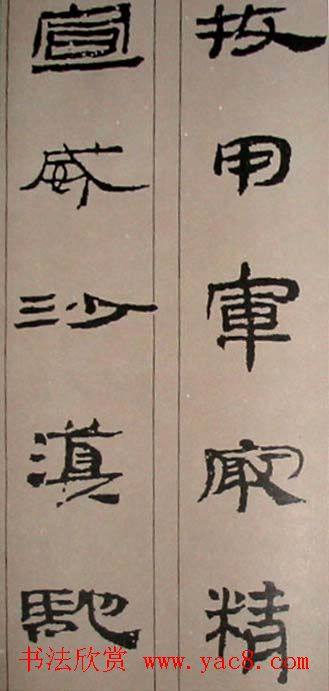 牧用軍最精
宣威沙漠馳
书法欣赏 www.yac8.com